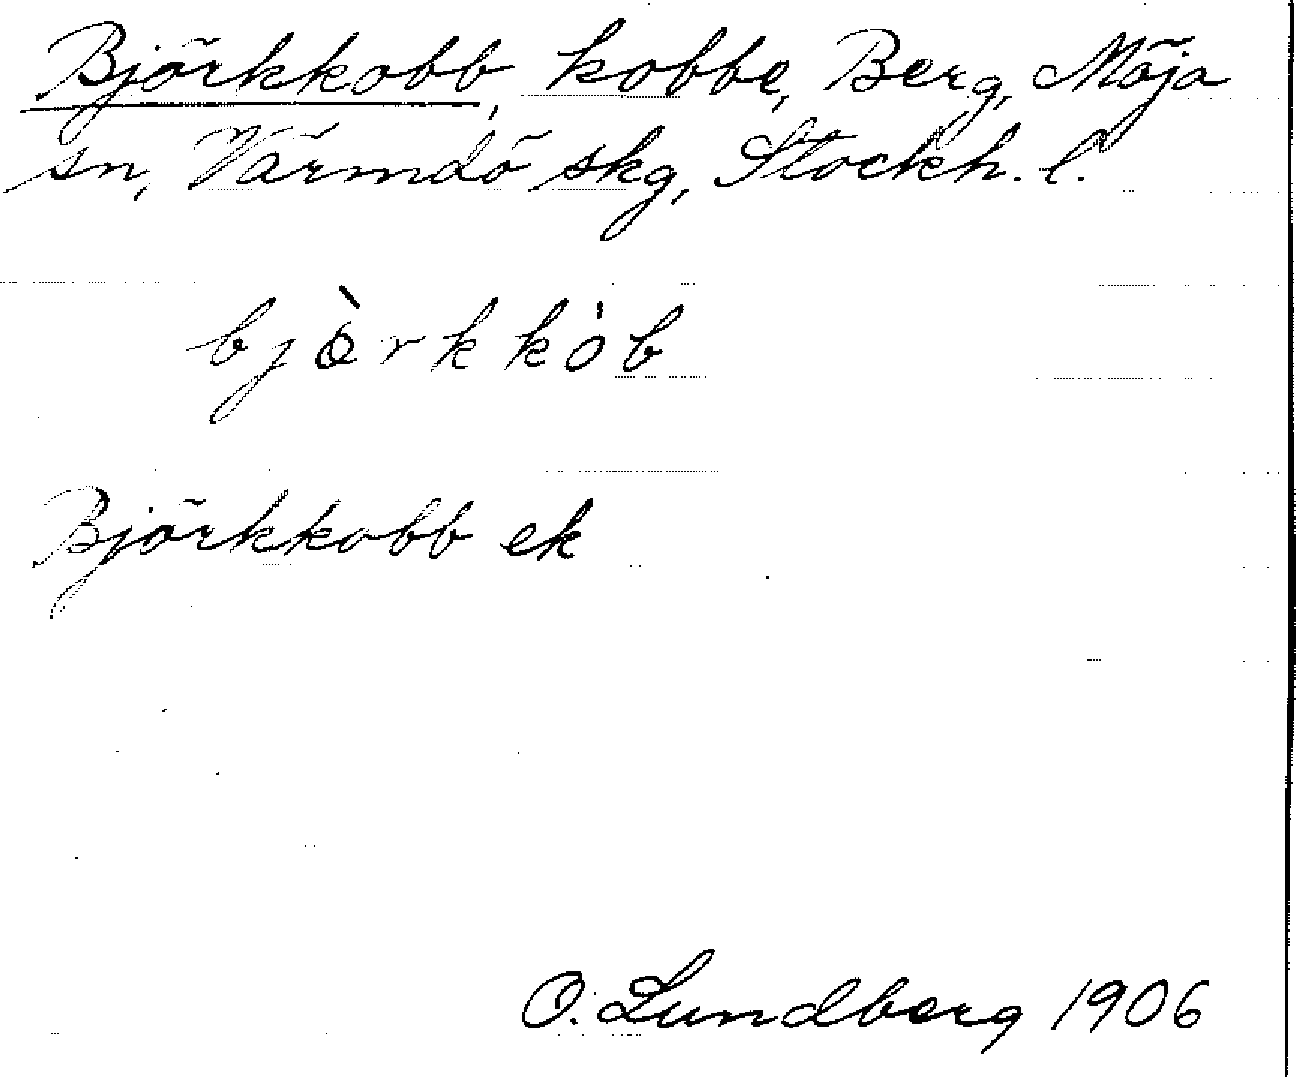 Björkkobb, kobbe, Berg, Möja
sn, Värmdö skg, Stockh. l.
bjòrkkób
Björkkobb ek
O. Lundberg 1906